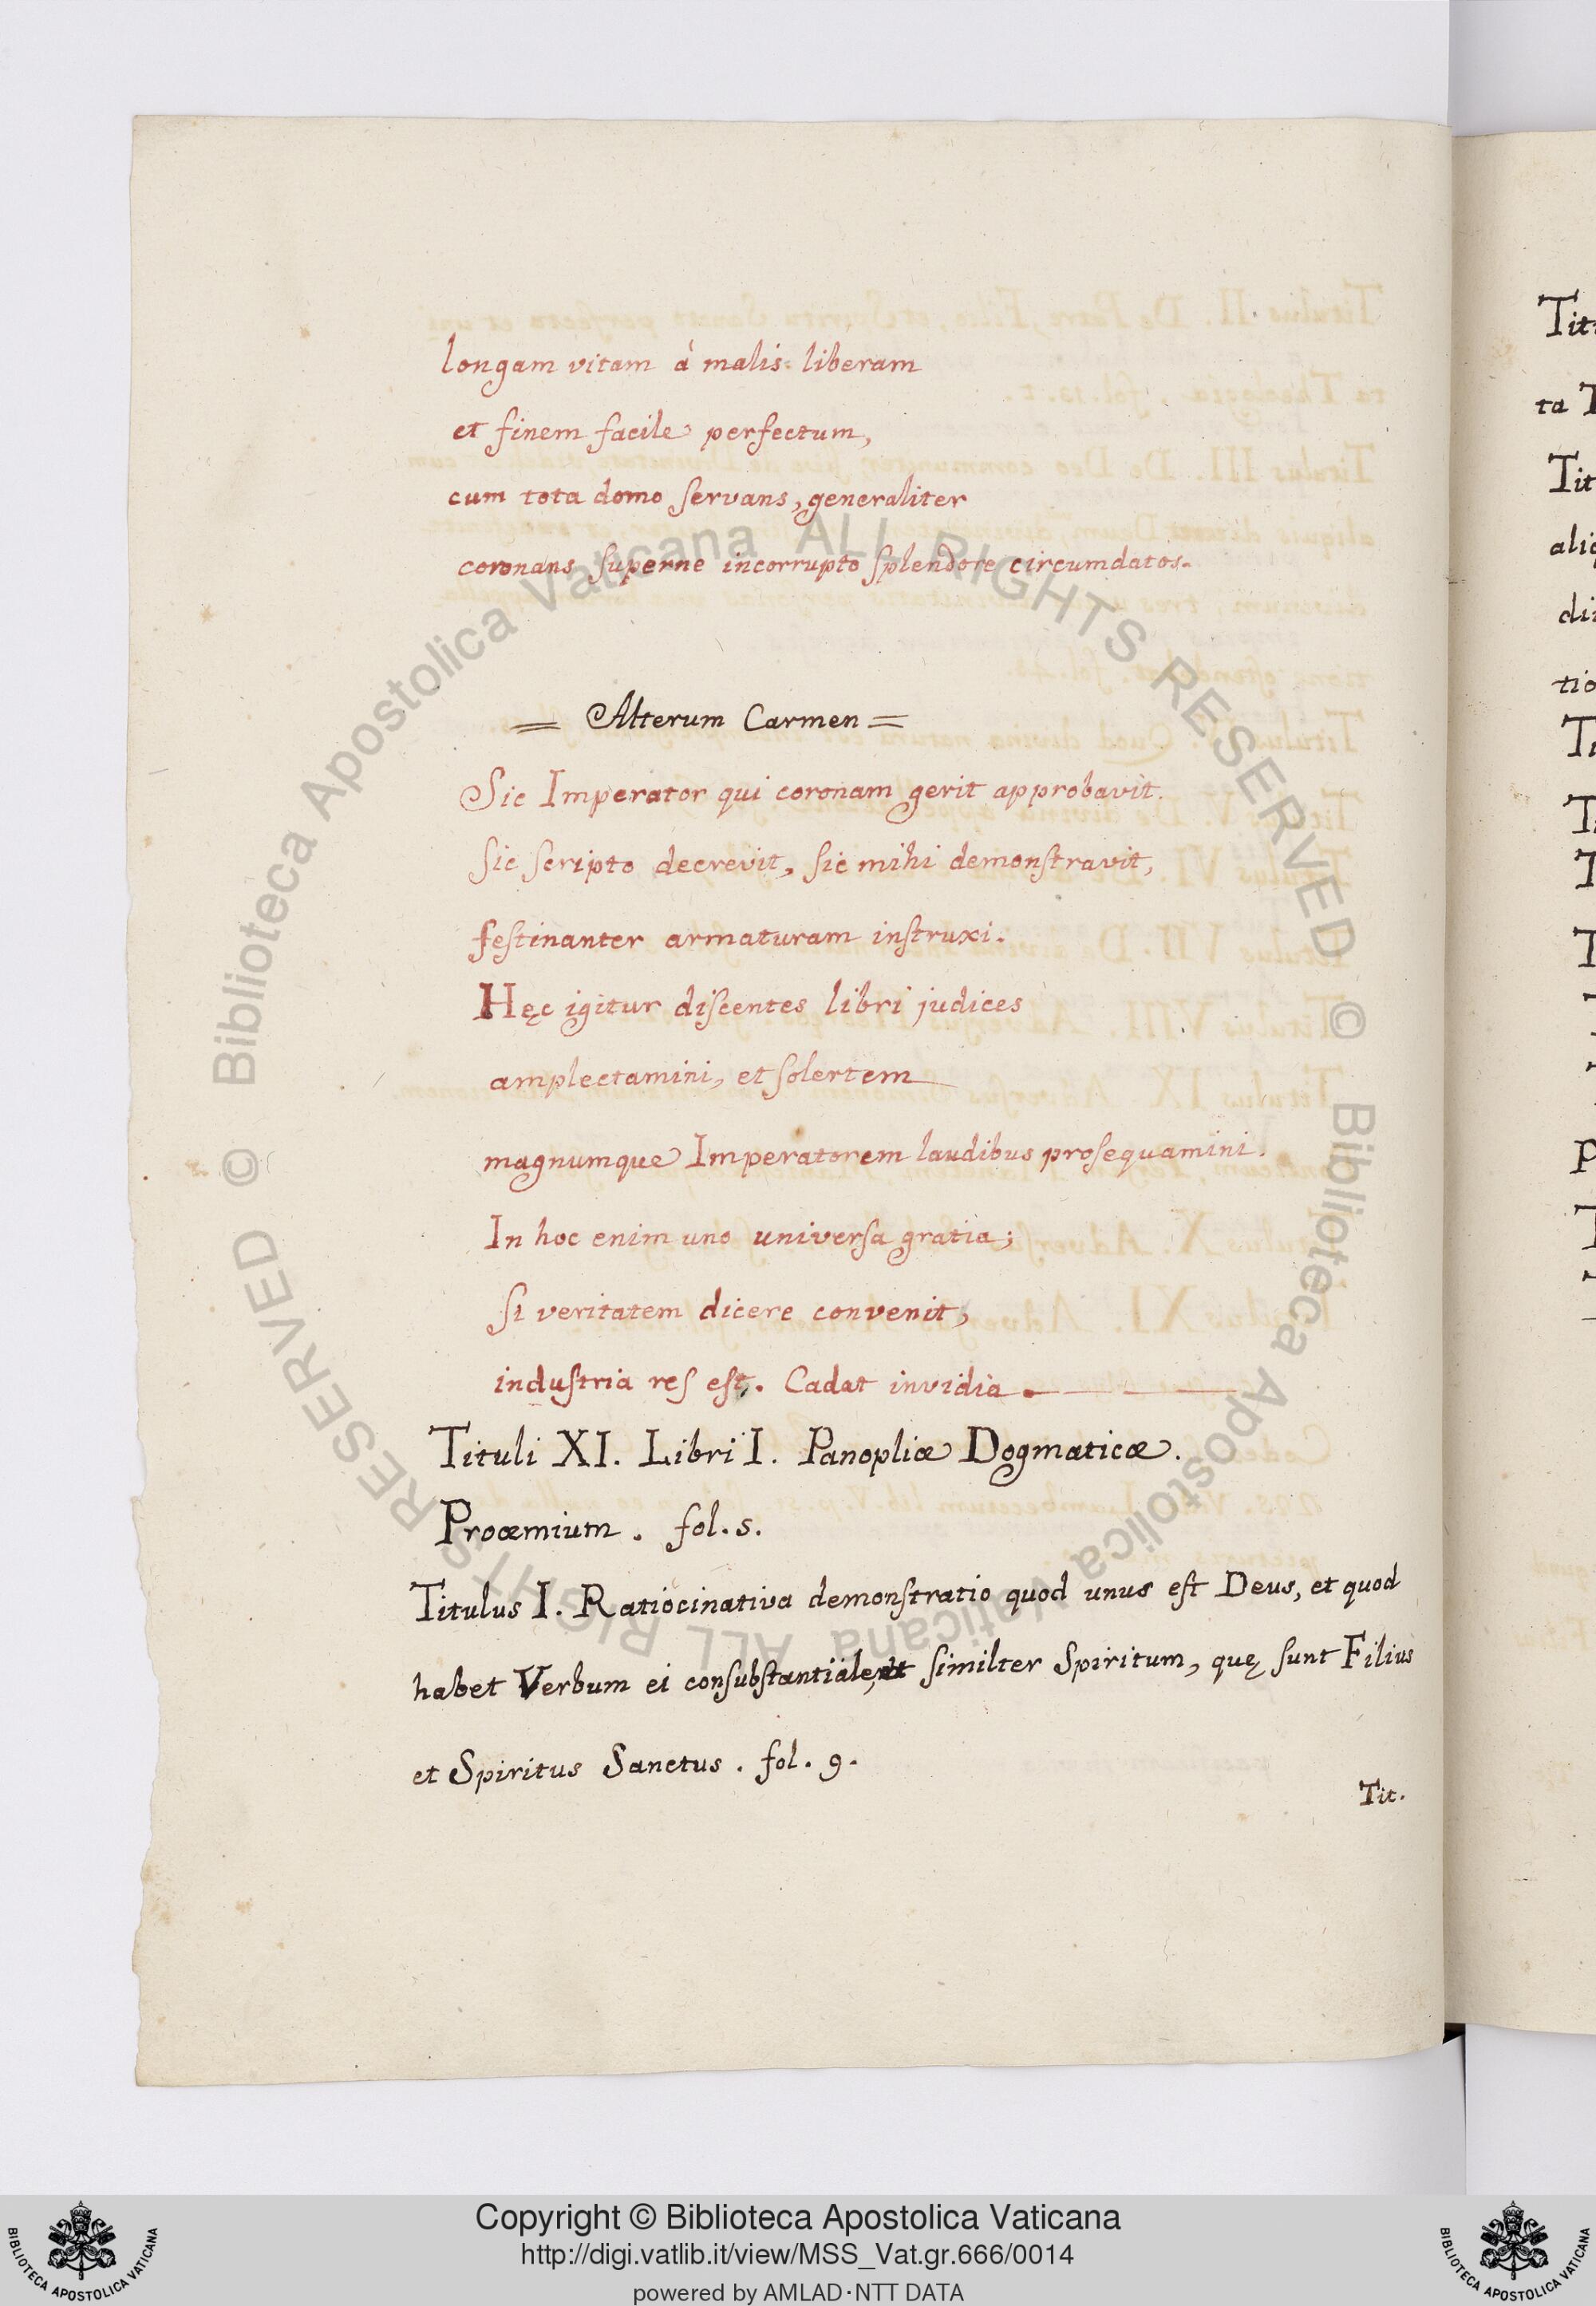 longam vitam à malis liberam
et finem facile perfectum,
cum tota domo servans, generaliter
coronans superne incorrupto splendore circumdatos.
= Alterum Carmen =
Sic Imperator qui coronam gerit approbavit.
sic scripto decrevit, sic mihi demonstravit,
festinanter armaturam instruxi.
Hęc igitur discentes libri judices
amplectamini, et solertem
magnumque Imperatorem laudibus prosequamini.
In hoc enim uno universa gratia;
si veritatem dicere convenit,
industria res est. Cadat invidia.
Tituli XI. Libri I. Panopliæ Dogmaticæ.
Proœmium. fol. 5.
Titulus I. Ratiocinativa demonstratio quod unus est Deus, et quod
habet Verbum ei consubstantiale, et similter Spiritum, quę sunt Filius
et Spiritus Sanctus. fol. 9.
Tit.
Copyright © Biblioteca Apostolica Vaticana
http://digi.vatlib.it/view/MSS_Vat.gr.666/0014
powered by AMLAD·NTT DATA